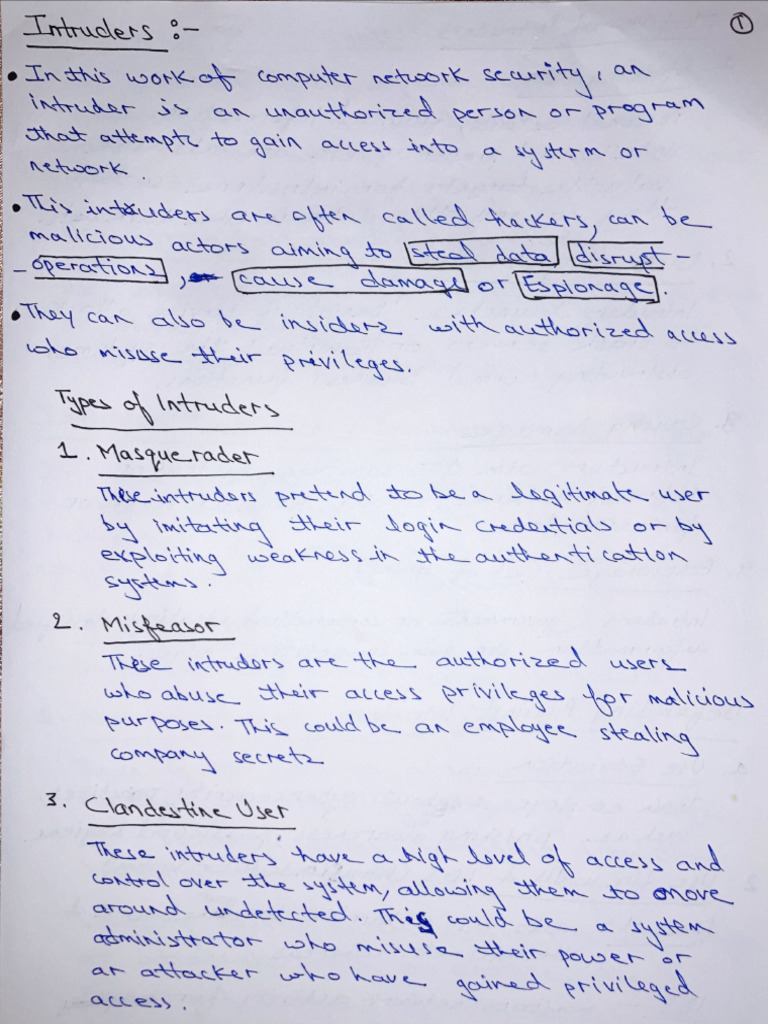 Intruders :-
1
• In this work of computer network security, an
intruder is an unauthorized person or program
that attempts to gain access into a systerm or
network.
• This intruders are often called hackers, can be
malicious actors aiming to steal data disrupt -
- operations, cause damage or Espionage.
• They can also be insiders with authorized access
who misuse their privileges.
Types of Intruders
1. Masquerader
These intruders pretend to be a legitimate user
by imitating their login credentials or by
exploiting weakness in the authentication
systems.
2. Misfeasor
These intruders are the authorized users
who abuse their access privileges for malicious
purposes. This could be an employee stealing
company secrets
3. Clandestine User
These intruders have a high level of access and
control over the system, allowing them to move
around undetected. This could be a system
administrator who misuse their power or
ar attacker who have gained privileged
access.